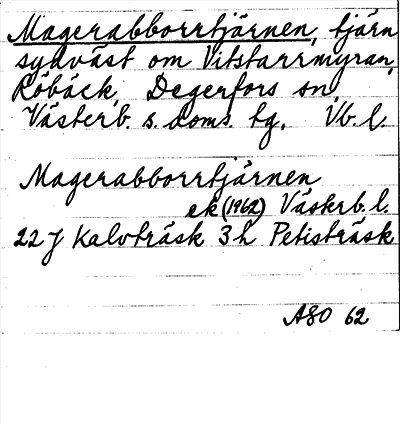 Magerabborrtjärnen, tjärn
sydväst om Vitstarrmyran,
Röbäck, Degerfors sn,
Västerb. s. doms. tg. Vb. l.
Magerabborrtjärnen
ek (1962) Västerb. l.
22 J Kalvträsk 3 h Petisträsk
ASO 62